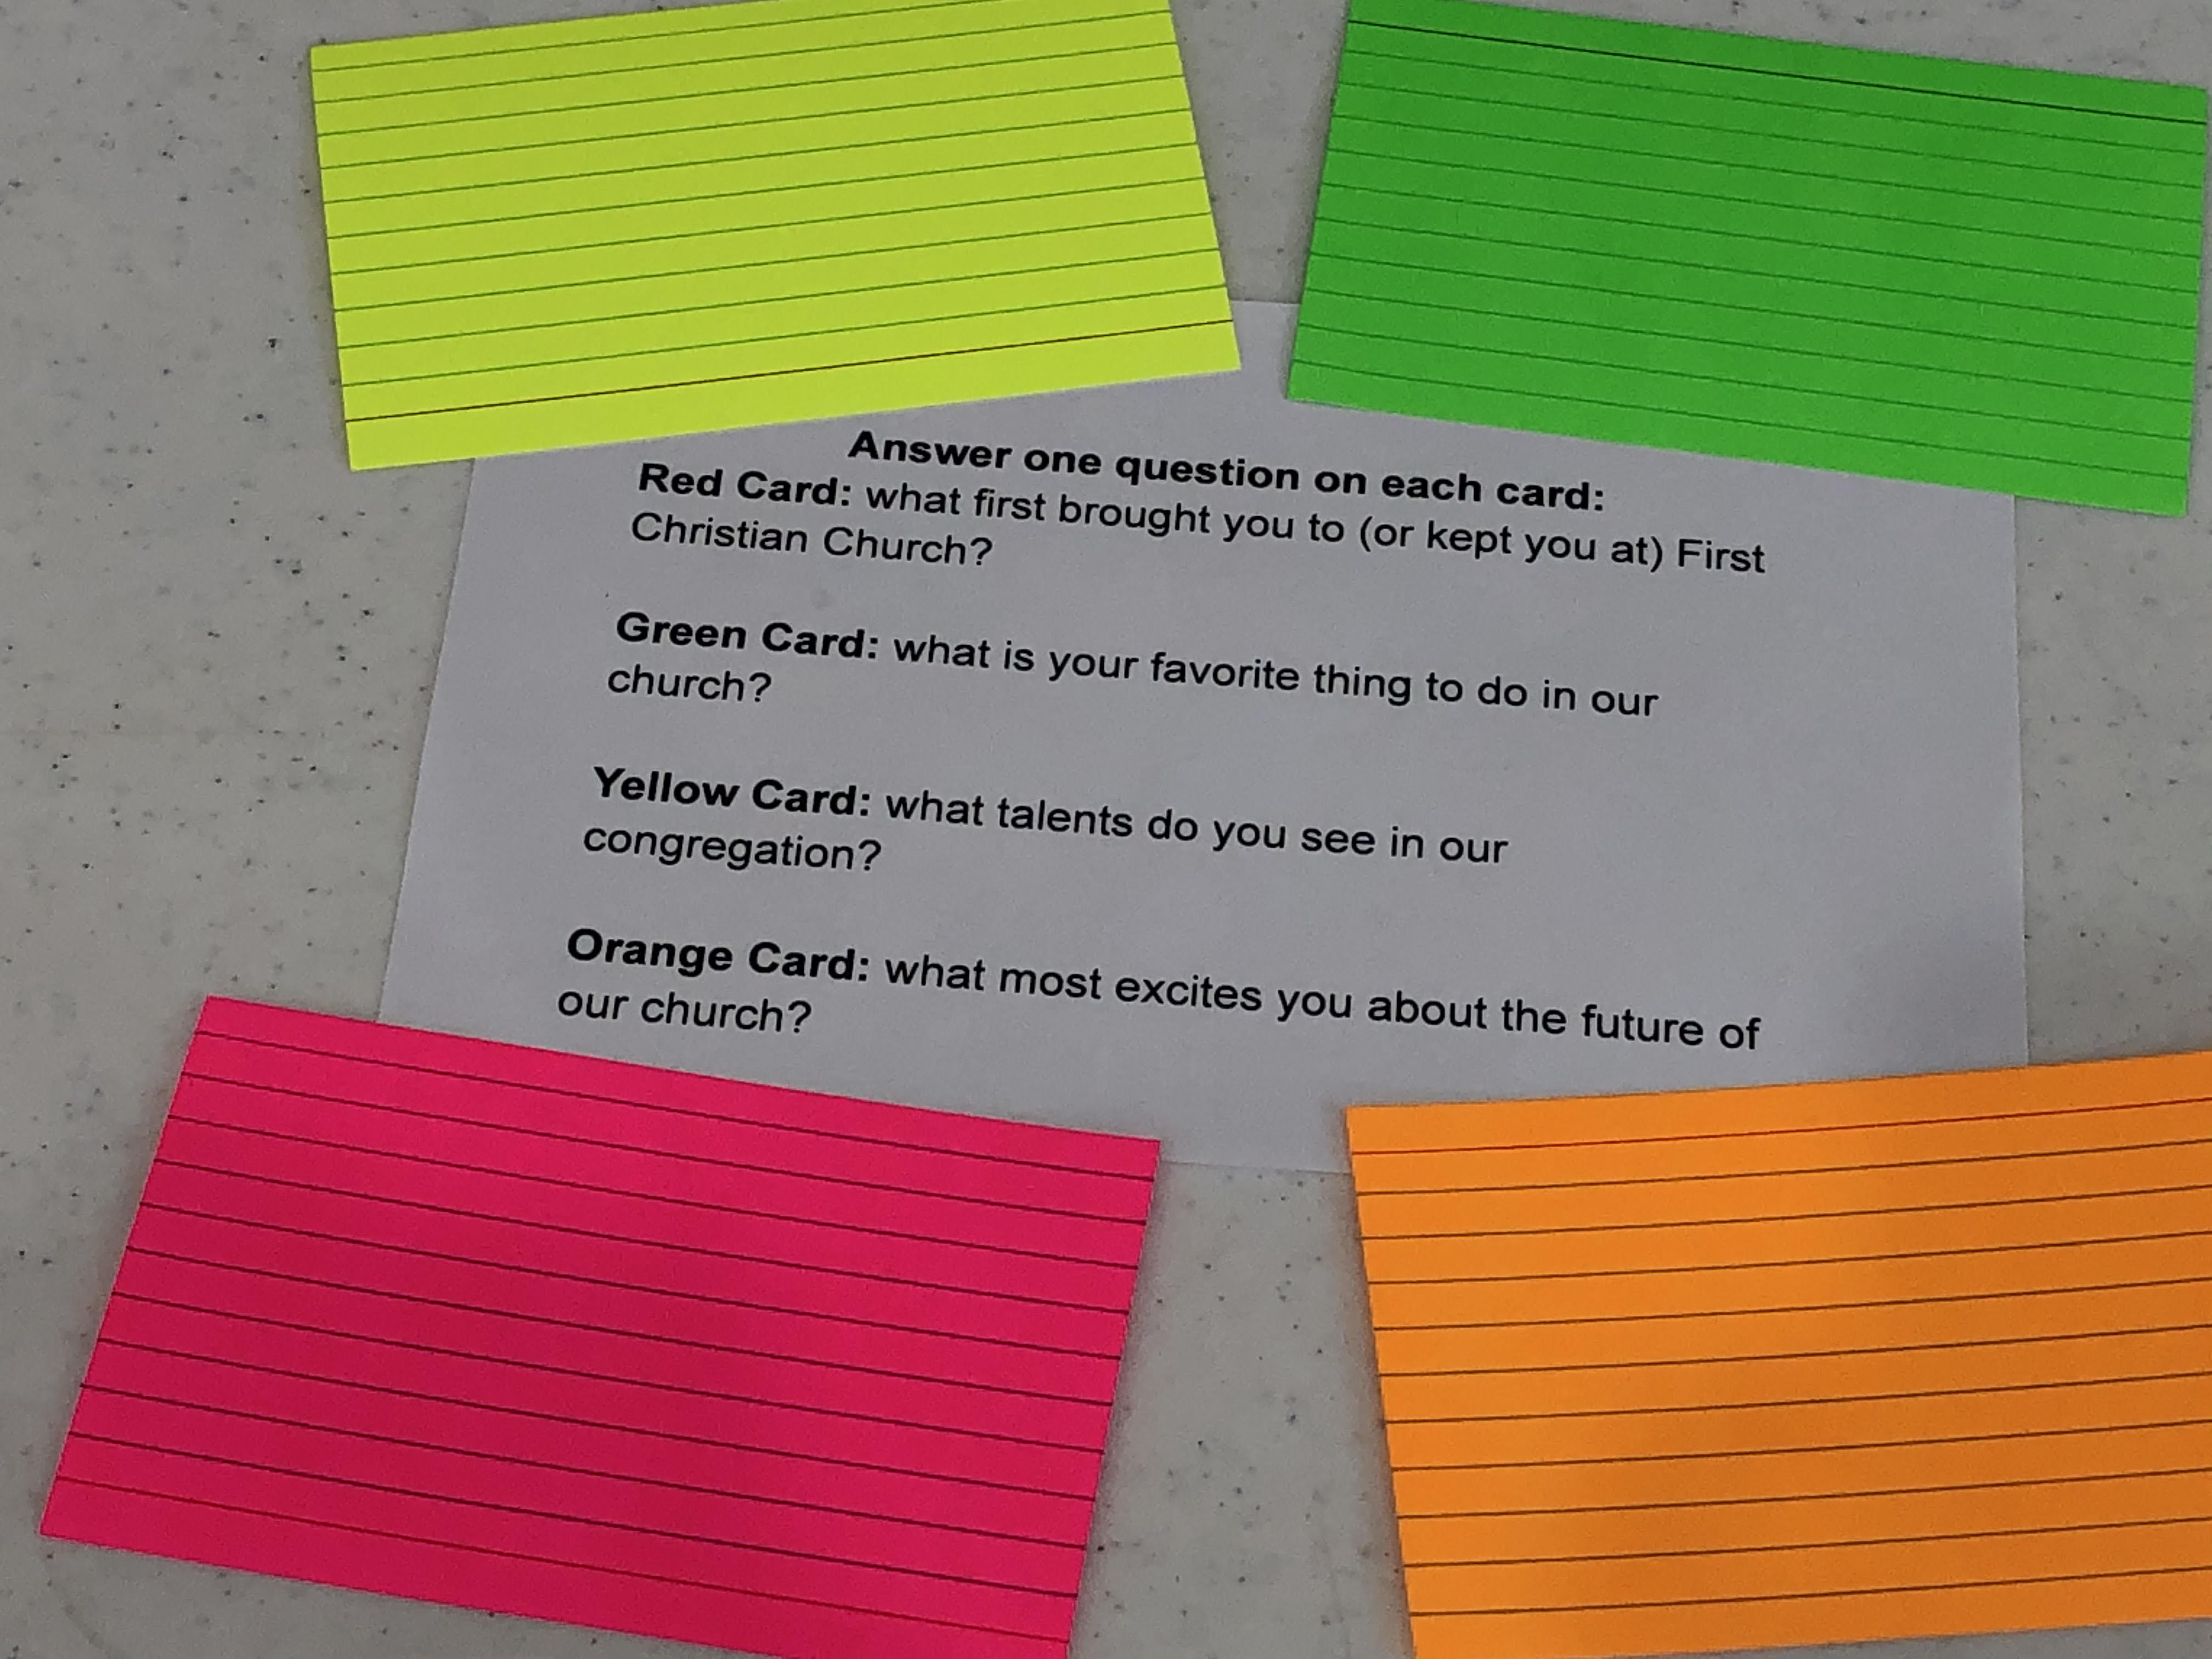 Answer one question on each card:
Red Card: what first brought you to (or kept you at) First
Christian Church?
Green Card: what is your favorite thing to do in our
church?
Yellow Card: what talents do you see in our
congregation?
Orange Card: what most excites you about the future of
our church?